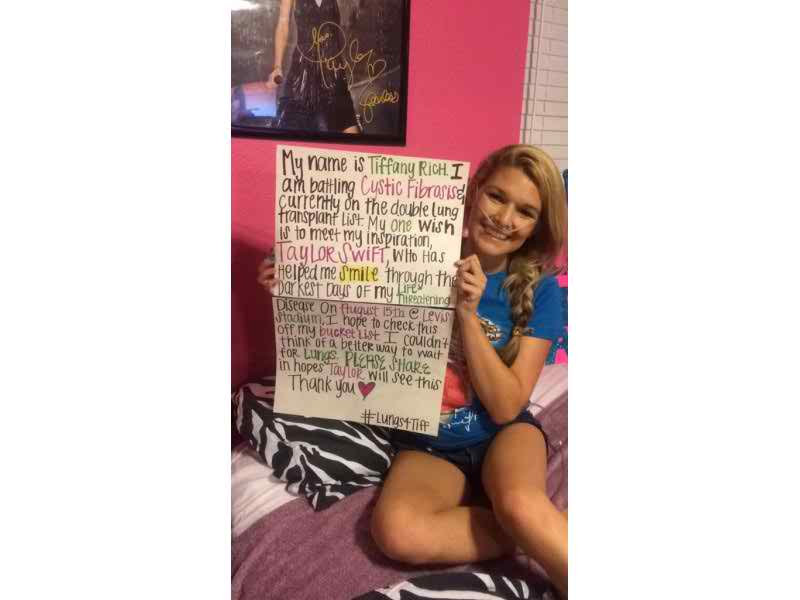 My name is Tiffany Rich. I
am battling Cystic Fibrosis &
currently on the double lung
transplant list. My one wish
is to meet my inspiration,
TAYLOR SWIFT, who has
Helped me smile through the
Darkest Days of my Life
threatening
Disease. On August 15th @ Levis
Stadium, I hope to check this
off my bucket list. I couldn't
think of a better way to wait
for Lungs. PLEASE SHARE
in hopes Taylor will see this
Thank you
#Lungs4Tiff